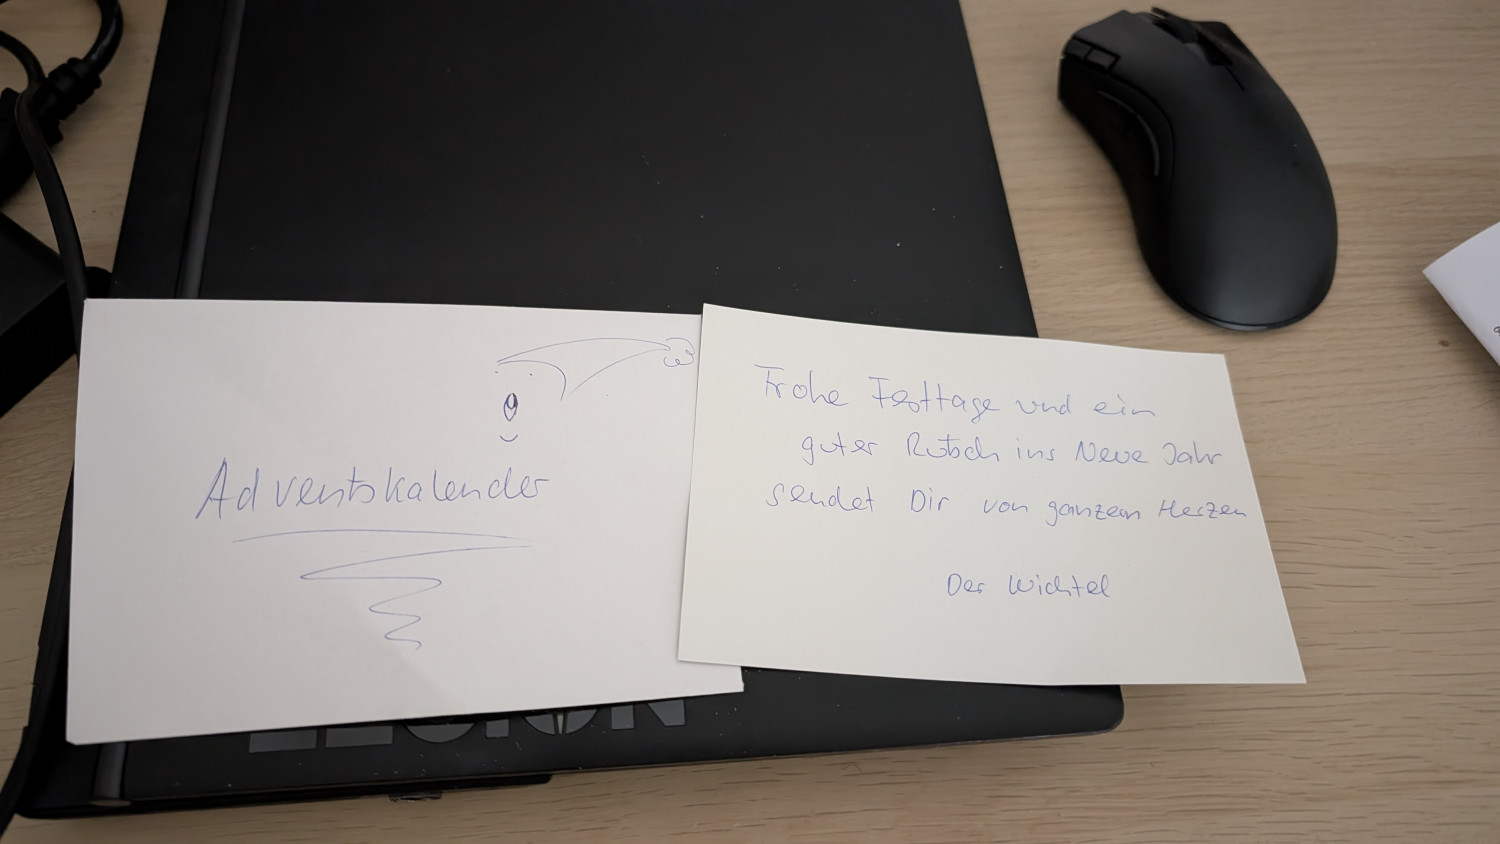 Adventskalender
Frohe Festtage und ein
guter Rutsch ins Neue Jahr
sendet Dir von ganzem Herzen
Der Wichtel
LEGION